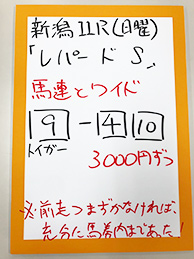 新潟11R(日曜)
「レパードS」
馬連とワイド
9-4 10
トイガー
3000円ずつ
※前走つまずかなければ、
充分に馬券内まであった!